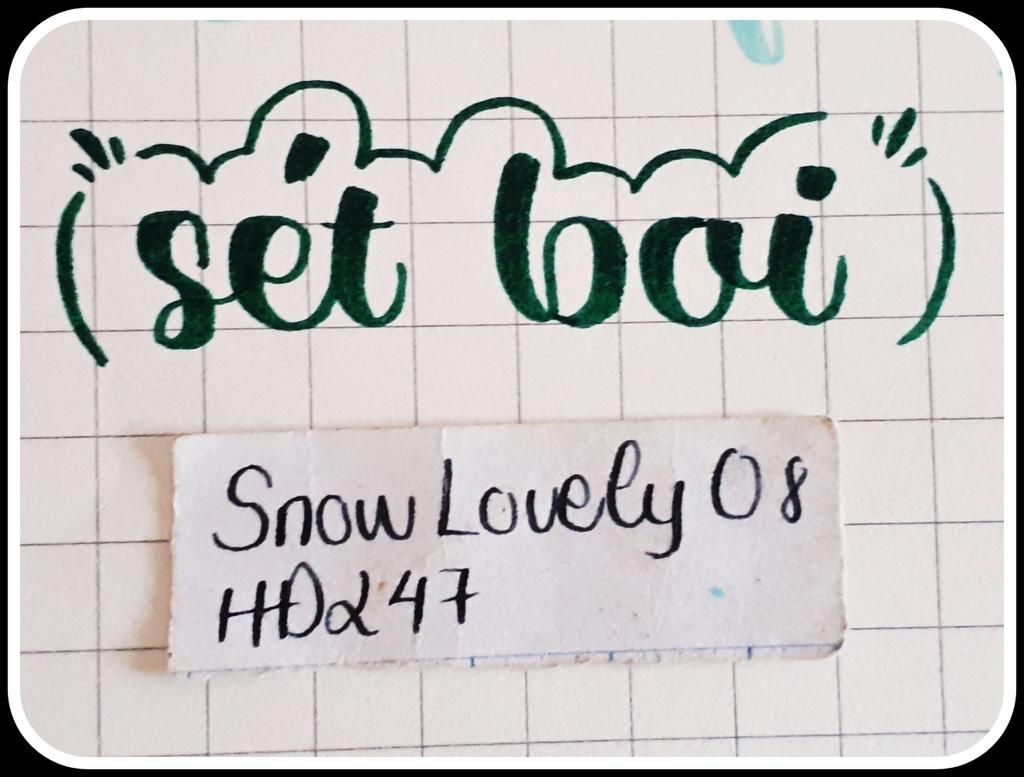 sét boi
Snow Lovely 08
HD247